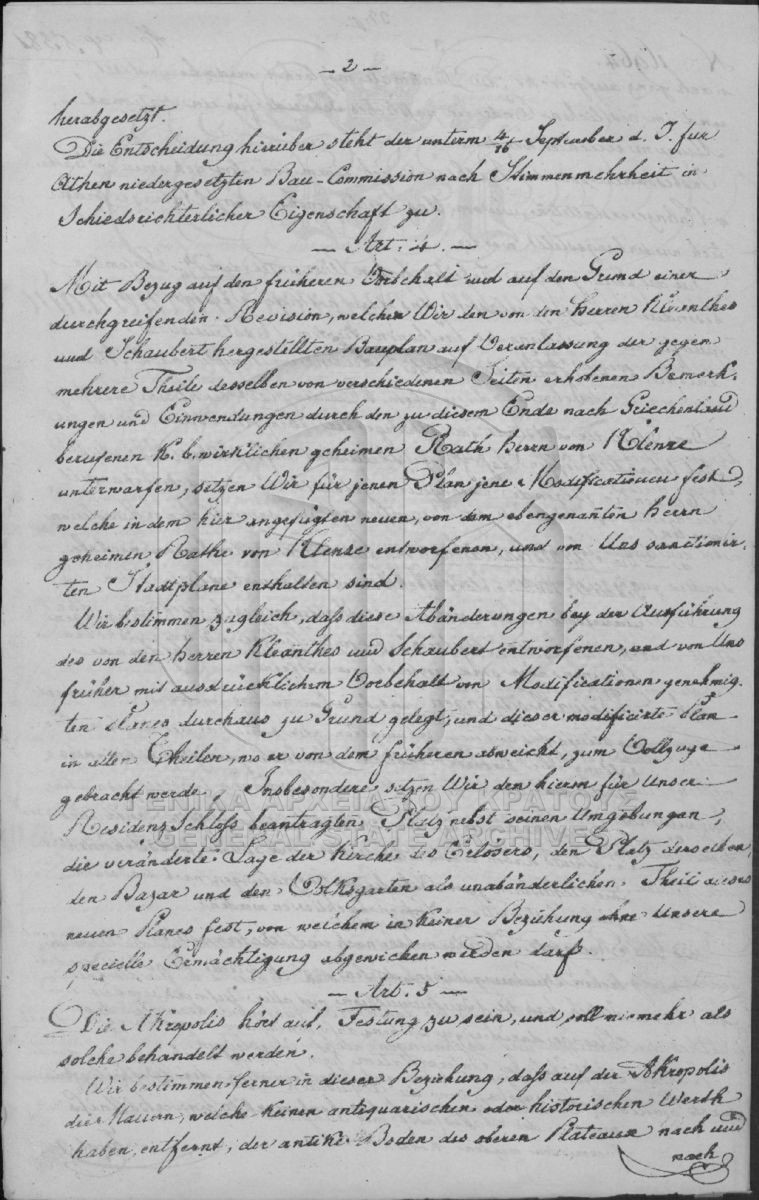 — 2 —
herabgesetzt.
Die Entscheidung hierüber steht der unterm 4/16 September d. J. für
Athen niedergesetzten Bau-Commission nach Stimmenmehrheit in
Schiedsrichterlicher Eigenschaft zu.
— Art. 4. —
Mit Bezug auf den früheren Vorbehalt und auf den Grund einer
durchgreifenden Revision, welcher Wir den von den Herren Kleanthes
und Schaubert hergestellten Bauplan auf Veranlassung der gegen
mehrere Theile desselben von verschiedenen Seiten erhobenen Bemerk-
ungen und Einwendungen durch den zu diesem Ende nach Griechenland
berufenen K. b. wirklichen geheimen Rath Herrn von Klenze
unterwarfen, setzen Wir für jenen Plan jene Modificationen fest,
welche in dem hier angefügten neuen, von dem obengenañten Herrn
geheimen Rathe von Klenze entworfenen, und von Uns sanctionir-
ten Stadtplane enthalten sind.
Wir bestimmen zugleich, daß diese Abänderungen bey der Ausführung
des von den Herren Kleanthes und Schaubert entworfenen, und von Uns
früher mit ausdrücklichem Vorbehalt von Modificationen genehmig-
ten Planes durchaus zu Grund gelegt, und dieser modificirte Plan
in allen Theilen, wo er von dem früheren abweicht, zum Vollzuge
gebracht werde. Insbesondere setzen Wir den hierin für Unser
Residenz Schloß beantragten Platz nebst seinen Umgebungen,
die veränderte Lage der Kirche des Erlösers, den Platz derselben,
den Bazar und den Volksgarten als unabänderlichen Theil dieses
neuen Planes fest, von welchem in keiner Beziehung ohne Unsere
specielle Ermächtigung abgewichen werden darf.
— Art. 5 —
Die Akropolis hört auf, Festung zu sein, und soll nie mehr als
solche behandelt werden.
Wir bestimmen ferner in dieser Beziehung, daß auf der Akropolis
die Mauern, welche keinen antiquarischen oder historischen Werth
haben, entfernt, der antike Boden des oberen Plateaus nach und
nach
ΓΕΝΙΚΑ ΑΡΧΕΙΑ ΤΟΥ ΚΡΑΤΟΥΣ
GENERAL STATE ARCHIVES